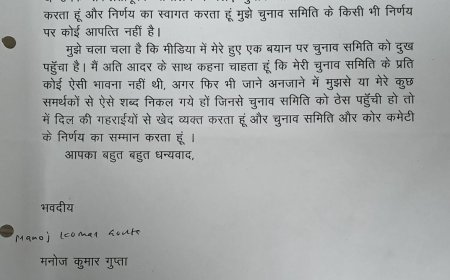 करता हूं और निर्णय का स्वागत करता हूं मुझे चुनाव समिति के किसी भी निर्णय
पर कोई आपत्ति नहीं है।
मुझे चला चला है कि मीडिया में मेरे हुए एक बयान पर चुनाव समिति को दुख
पहुँचा है। मैं अति आदर के साथ कहना चाहता हूं कि मेरी चुनाव समिति के प्रति
कोई ऐसी भावना नहीं थी, अगर फिर भी जाने अनजाने में मुझसे या मेरे कुछ
समर्थकों से ऐसे शब्द निकल गये हों जिनसे चुनाव समिति को ठेस पहुँची हो तो
में दिल की गहराईयों से खेद व्यक्त करता हूं और चुनाव समिति और कोर कमेटी
के निर्णय का सम्मान करता हूं ।
आपका बहुत बहुत धन्यवाद,
भवदीय
Manoj Kumar
मनोज कुमार गुप्ता